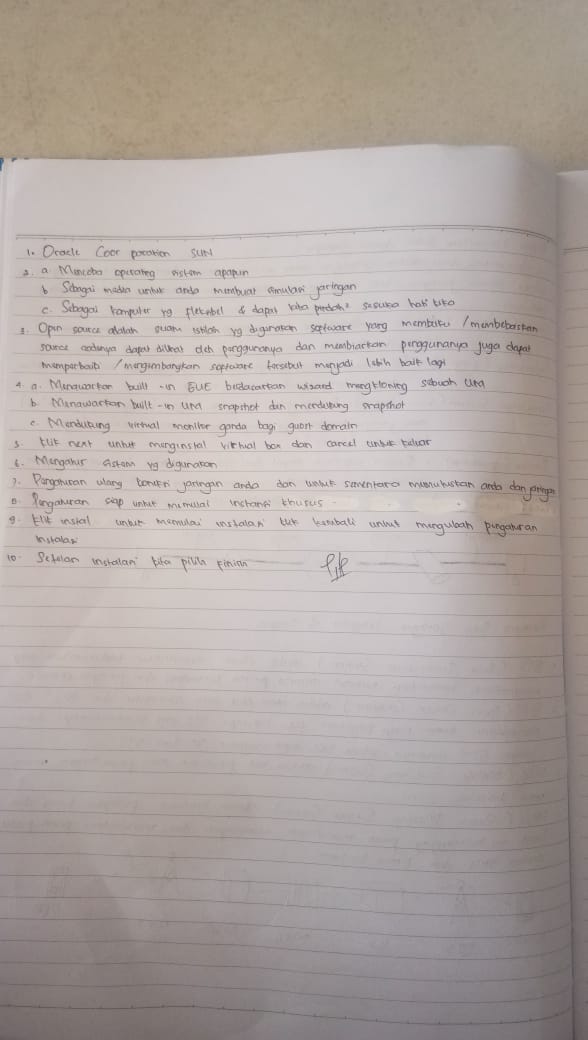 1. Oracle Coor poration SUN
2. a. Mencoba operateg sistem apapun
b Sebagai media untuk anda membuat simulasi jaringan
c. Sebagai komputer yg fleksibel & dapat kita pindah² sesuka hati kita
3. Open source adalah suatu istilah yg digunakan software yang membuku / membebaskan
source codenya dapat dilihat oleh penggunanya dan membiarkan penggunanya juga dapat
memperbaiki / mengembangkan software tersebut menjadi lebih baik lagi
4. a. Menawarkan built - in EUE bedasarkan wizard mengkloning sebuah UM
b. Menawarkan built - in UM snapshot dan mendukung snapshot
c. Mendukung virtual monitor ganda bagi guest domain
5. klik next untuk menginstal virtual box dan cancel untuk keluar
6. Mengatur sistem yg digunakan
7. Pengaturan ulang koneksi jaringan anda dan untuk sementara memutuskan anda dan jaringan
8. Pengaturan siap untuk memulai instansi khusus
9. klik instal untuk memulai instalasi klik kembali untuk mengubah pengaturan
instalasi
10. Setelah instalasi kita pilih finish